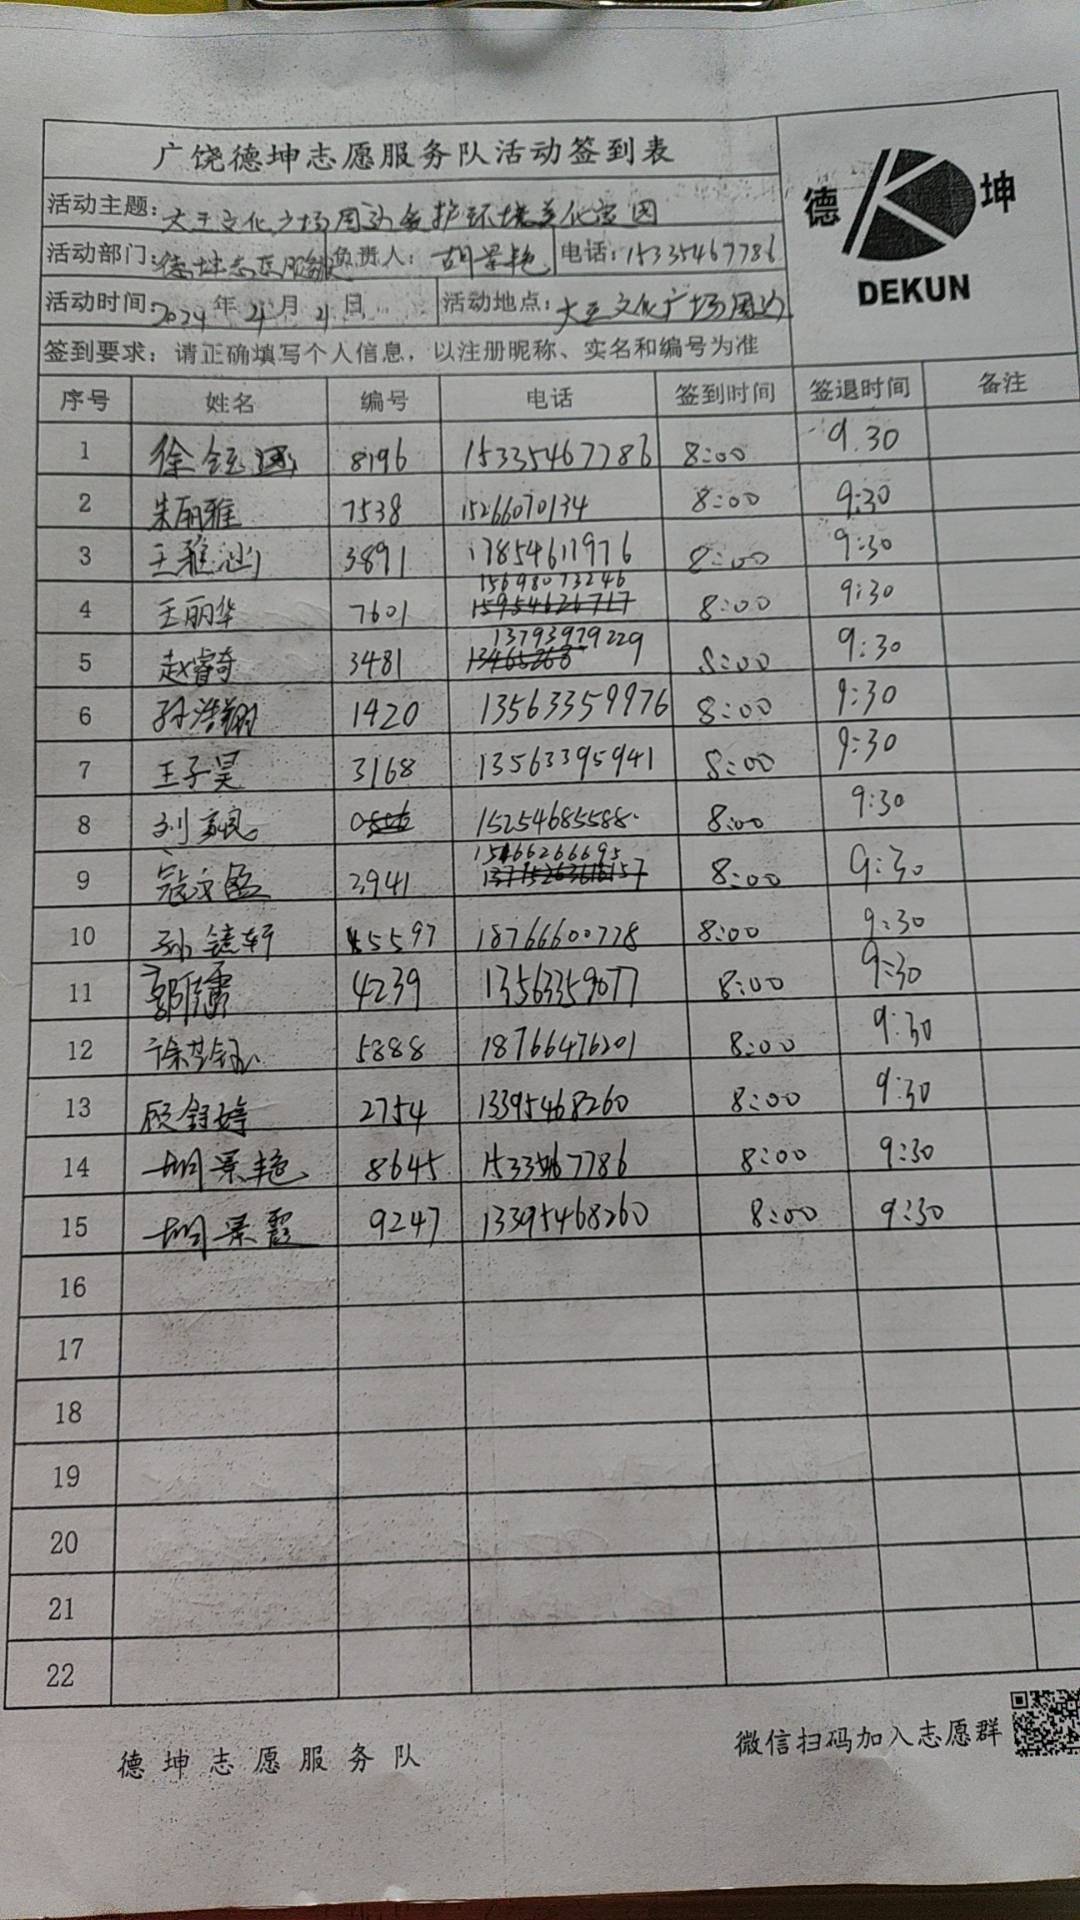 广饶德坤志愿服务队活动签到表
德 坤
DEKUN
活动主题: 大王文化广场周边爱护环境美化家园
活动部门: 德坤志愿服务队 负责人: 胡景艳 电话: 15335467786
活动时间: 2024 年 4 月 21 日 活动地点: 大王文化广场周边
签到要求: 请正确填写个人信息，以注册昵称、实名和编号为准
序号 姓名 编号 电话 签到时间 签退时间 备注
1 徐钰 8196 15335467786 8:00 9.30
2 朱丽雅 7538 15266070134 8:00 9:30
3 王雅涵 3891 17854611976 8:00 9:30
4 王丽华 7601 15698073246 8:00 9:30
5 赵睿奇 3481 13793979229 8:00 9:30
6 孙浩翔 1420 13563359976 8:00 9:30
7 王子昊 3168 13563395941 8:00 9:30
8 刘 15254685588 8:00 9:30
9 寇文盈 3941 15466266695 8:00 9:30
10 孙镱轩 5597 18766600778 8:00 9:30
11 郭儒 4239 13563359077 8:00 9:30
12 徐梦钰 5888 18766476201 8:00 9:30
13 顾舒婷 2754 13395468260 8:00 9:30
14 胡景艳 8645 15335467786 8:00 9:30
15 胡景霞 9247 13395468260 8:00 9:30
16
17
18
19
20
21
22
德坤志愿服务队
微信扫码加入志愿群